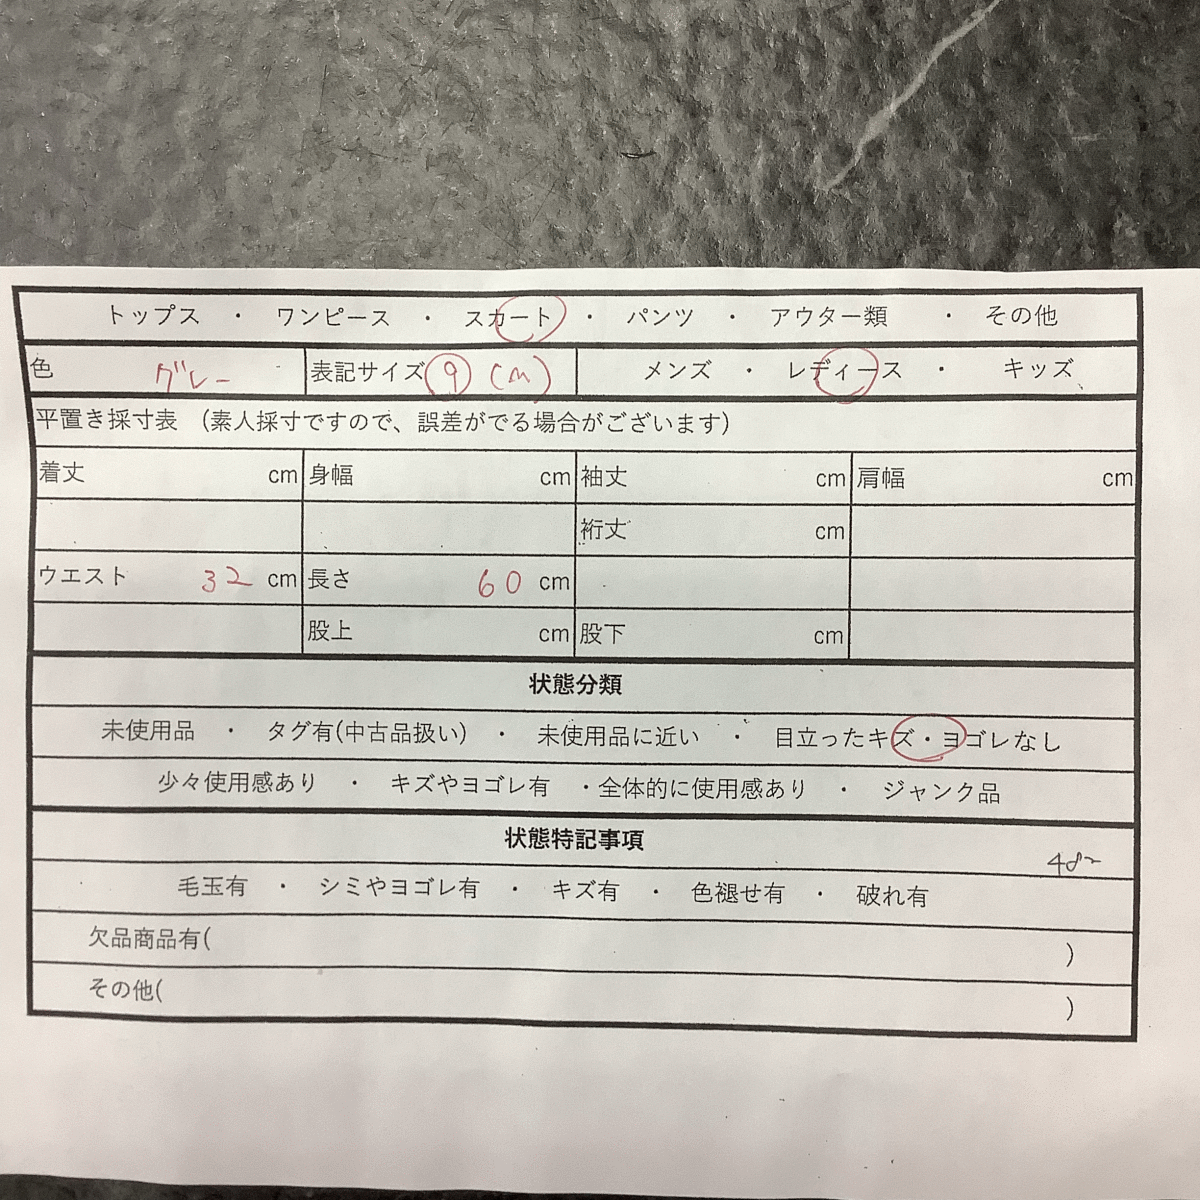 トップス ・ ワンピース ・ スカート ・ パンツ ・ アウター類 ・ その他
色 グレー 表記サイズ 9 (m) メンズ ・ レディース ・ キッズ
平置き採寸表 （素人採寸ですので、誤差がでる場合がございます）
着丈 cm 身幅 cm 袖丈 cm 肩幅 cm
裄丈 cm
ウエスト 32 cm 長さ 60 cm
股上 cm 股下 cm
状態分類
未使用品 ・ タグ有(中古品扱い) ・ 未使用品に近い ・ 目立ったキズ・ヨゴレなし
少々使用感あり ・ キズやヨゴレ有 ・全体的に使用感あり ・ ジャンク品
状態特記事項
毛玉有 ・ シミやヨゴレ有 ・ キズ有 ・ 色褪せ有 ・ 破れ有
欠品商品有( )
その他( )